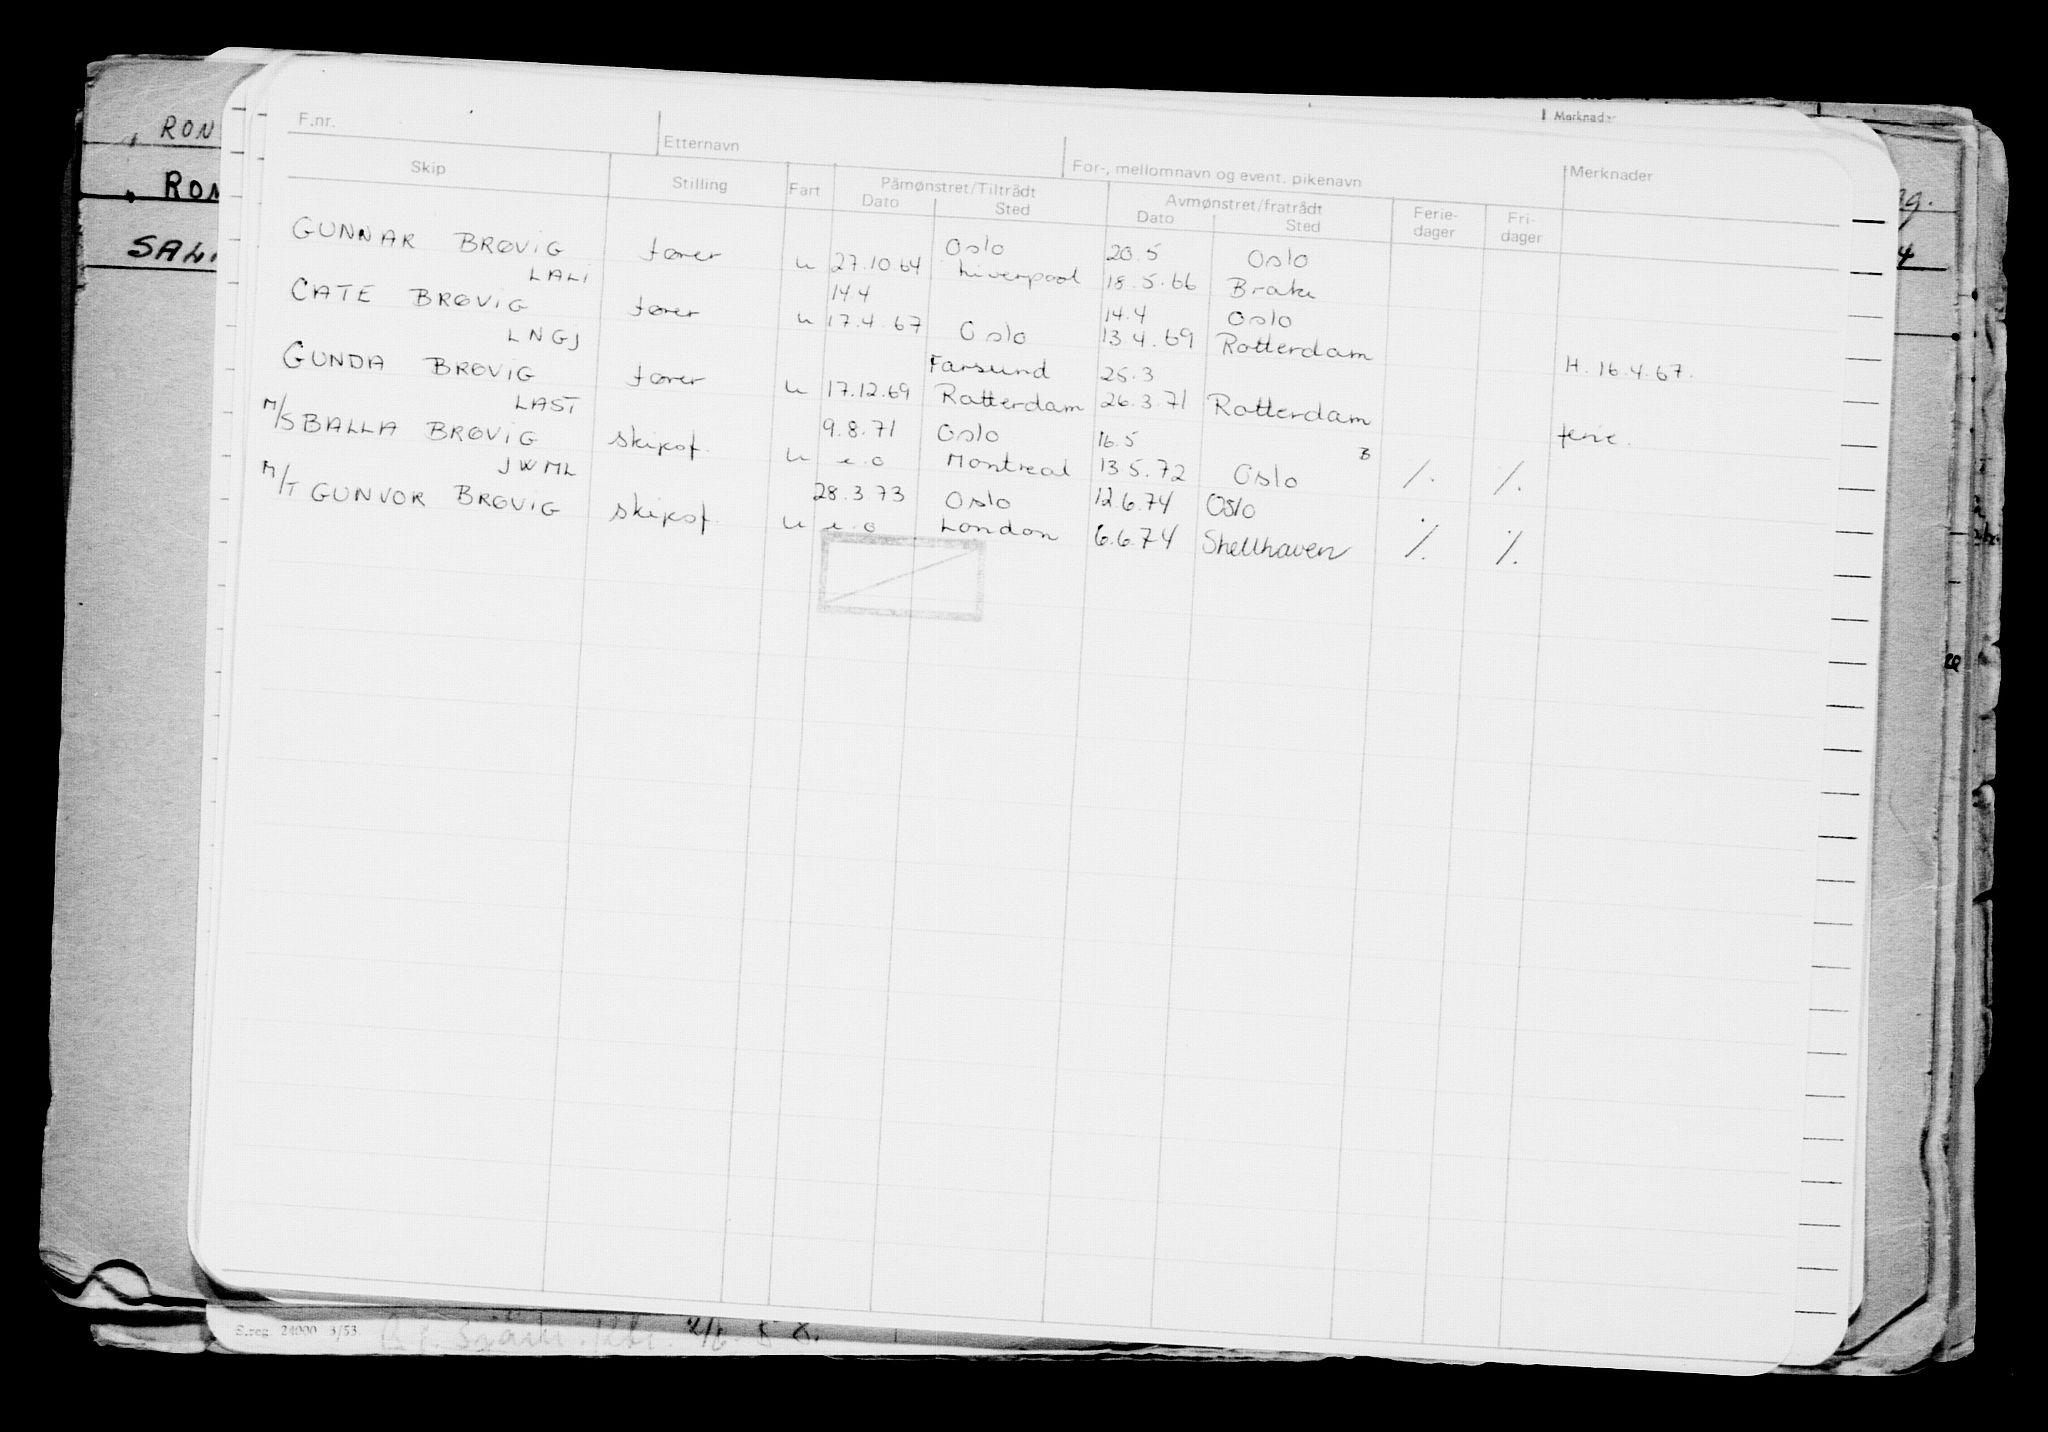 Merknader
RON
RON
SAL
F.nr. Etternavn For-, mellomnavn og event. pikenavn Merknader
Skip Stilling Fart Påmønstret/Tiltrådt Avmønstret/fratrådt Ferie- Fri-
Dato Sted Dato Sted dager dager
GUNNAR BRØVIG fører Oslo 20.5 Oslo
LALI u 27.10 64 Liverpool 18.5.66 Brake
CATE BRØVIG fører 14.4 14.4 Oslo
LNGJ u 17.4.67 Oslo 13.4.69 Rotterdam H. 16.4.67.
GUNDA BRØVIG fører Farsund 25.3
LAST u 17.12.69 Rotterdam 26.3.71 Rotterdam ferie.
M/S BALLA BRØVIG skipsf. 9.8.71 Oslo 16.5
JWML u e.o Montreal 13.5.72 Oslo B /. /.
M/T GUNVOR BRØVIG skipsf. 28.3.73 Oslo 12.6.74 Oslo
u e.o London 6.6.74 Shellhaven /. /.
S.reg. 24000 3/53.